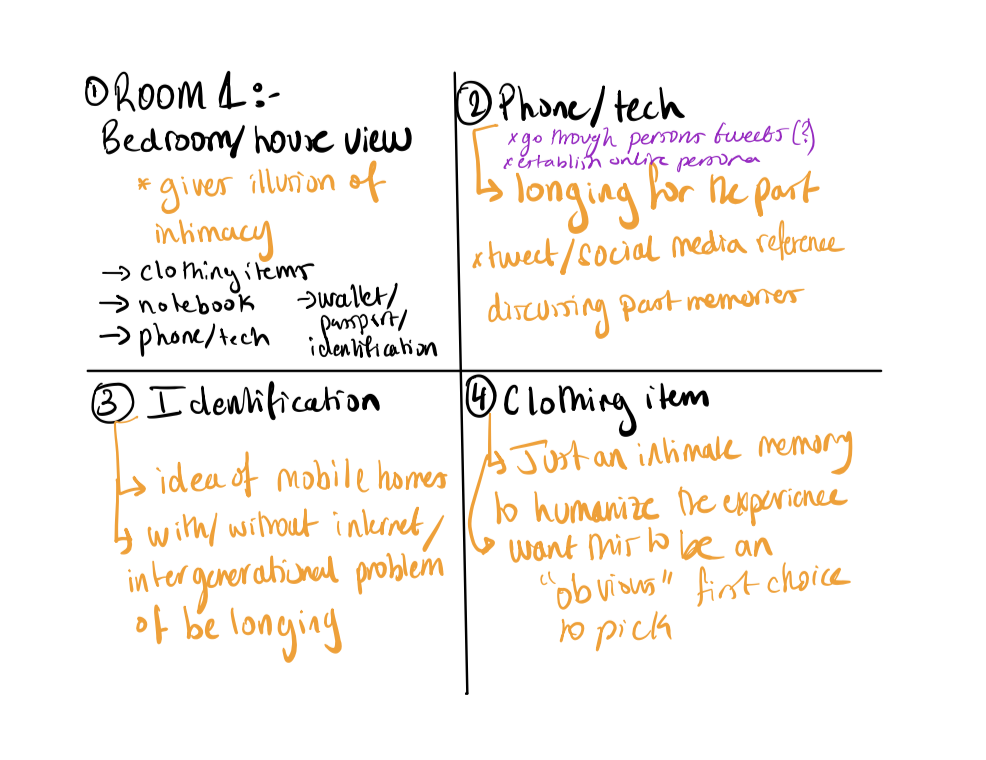 ① ROOM 1:-
Bedroom/house view
* gives illusion of
intimacy
→ clothing items
→ notebook
→ phone/tech
→ wallet/
passport/
identification
② Phone/tech
* go through persons tweets (?)
* establish online persona
↳ longing for the past
* tweet/social media reference
discussing past memories
③ Identification
↳ idea of mobile homes
↳ with/without internet/
intergenerational problem
of belonging
④ Clothing item
↳ Just an intimate memory
to humanize the experience
↳ want this to be an
"obvious" first choice
to pick